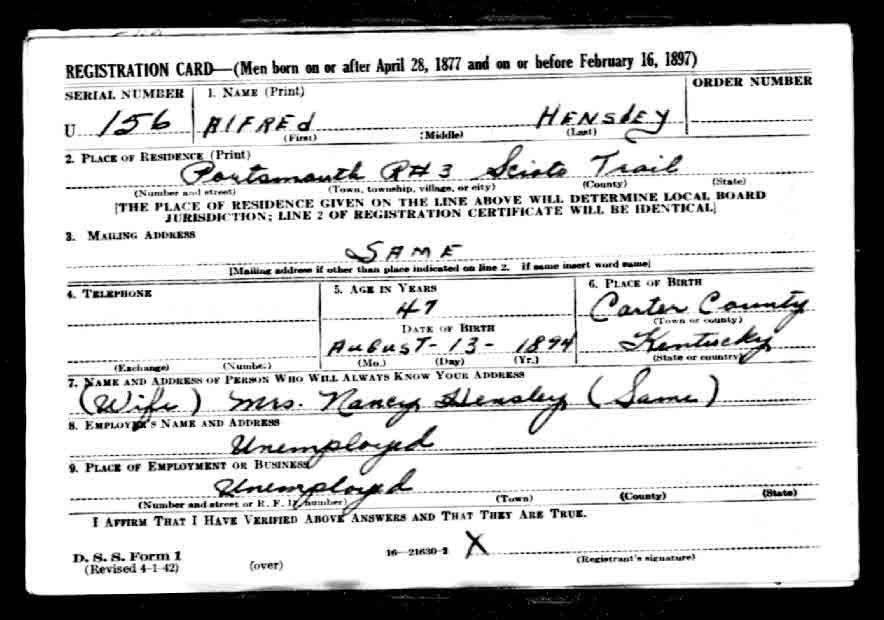 REGISTRATION CARD—(Men born on or after April 28, 1877 and on or before February 16, 1897)
SERIAL NUMBER 1. NAME (Print) ORDER NUMBER
U 156 ALFRED HENSLEY
(First) (Middle) (Last)
2. PLACE OF RESIDENCE (Print)
Portsmouth R#3 Scioto Trail
(Number and street) (Town, township, village, or city) (County) (State)
[THE PLACE OF RESIDENCE GIVEN ON THE LINE ABOVE WILL DETERMINE LOCAL BOARD
JURISDICTION; LINE 2 OF REGISTRATION CERTIFICATE WILL BE IDENTICAL]
3. MAILING ADDRESS
SAME
[Mailing address if other than place indicated on line 2. If same insert word same]
4. TELEPHONE 5. AGE IN YEARS 6. PLACE OF BIRTH
47 Carter County
(Town or county)
DATE OF BIRTH
AUGUST-13-1894 Kentucky
(Exchange) (Number) (Mo.) (Day) (Yr.) (State or country)
7. NAME AND ADDRESS OF PERSON WHO WILL ALWAYS KNOW YOUR ADDRESS
(Wife) Mrs. Nancy Hensley (Same)
8. EMPLOYER'S NAME AND ADDRESS
Unemployed
9. PLACE OF EMPLOYMENT OR BUSINESS
Unemployed
(Number and street or R. F. D. number) (Town) (County) (State)
I AFFIRM THAT I HAVE VERIFIED ABOVE ANSWERS AND THAT THEY ARE TRUE.
D. S. S. Form 1 16—21630-2 X
(Revised 4-1-42) (over) (Registrant's signature)